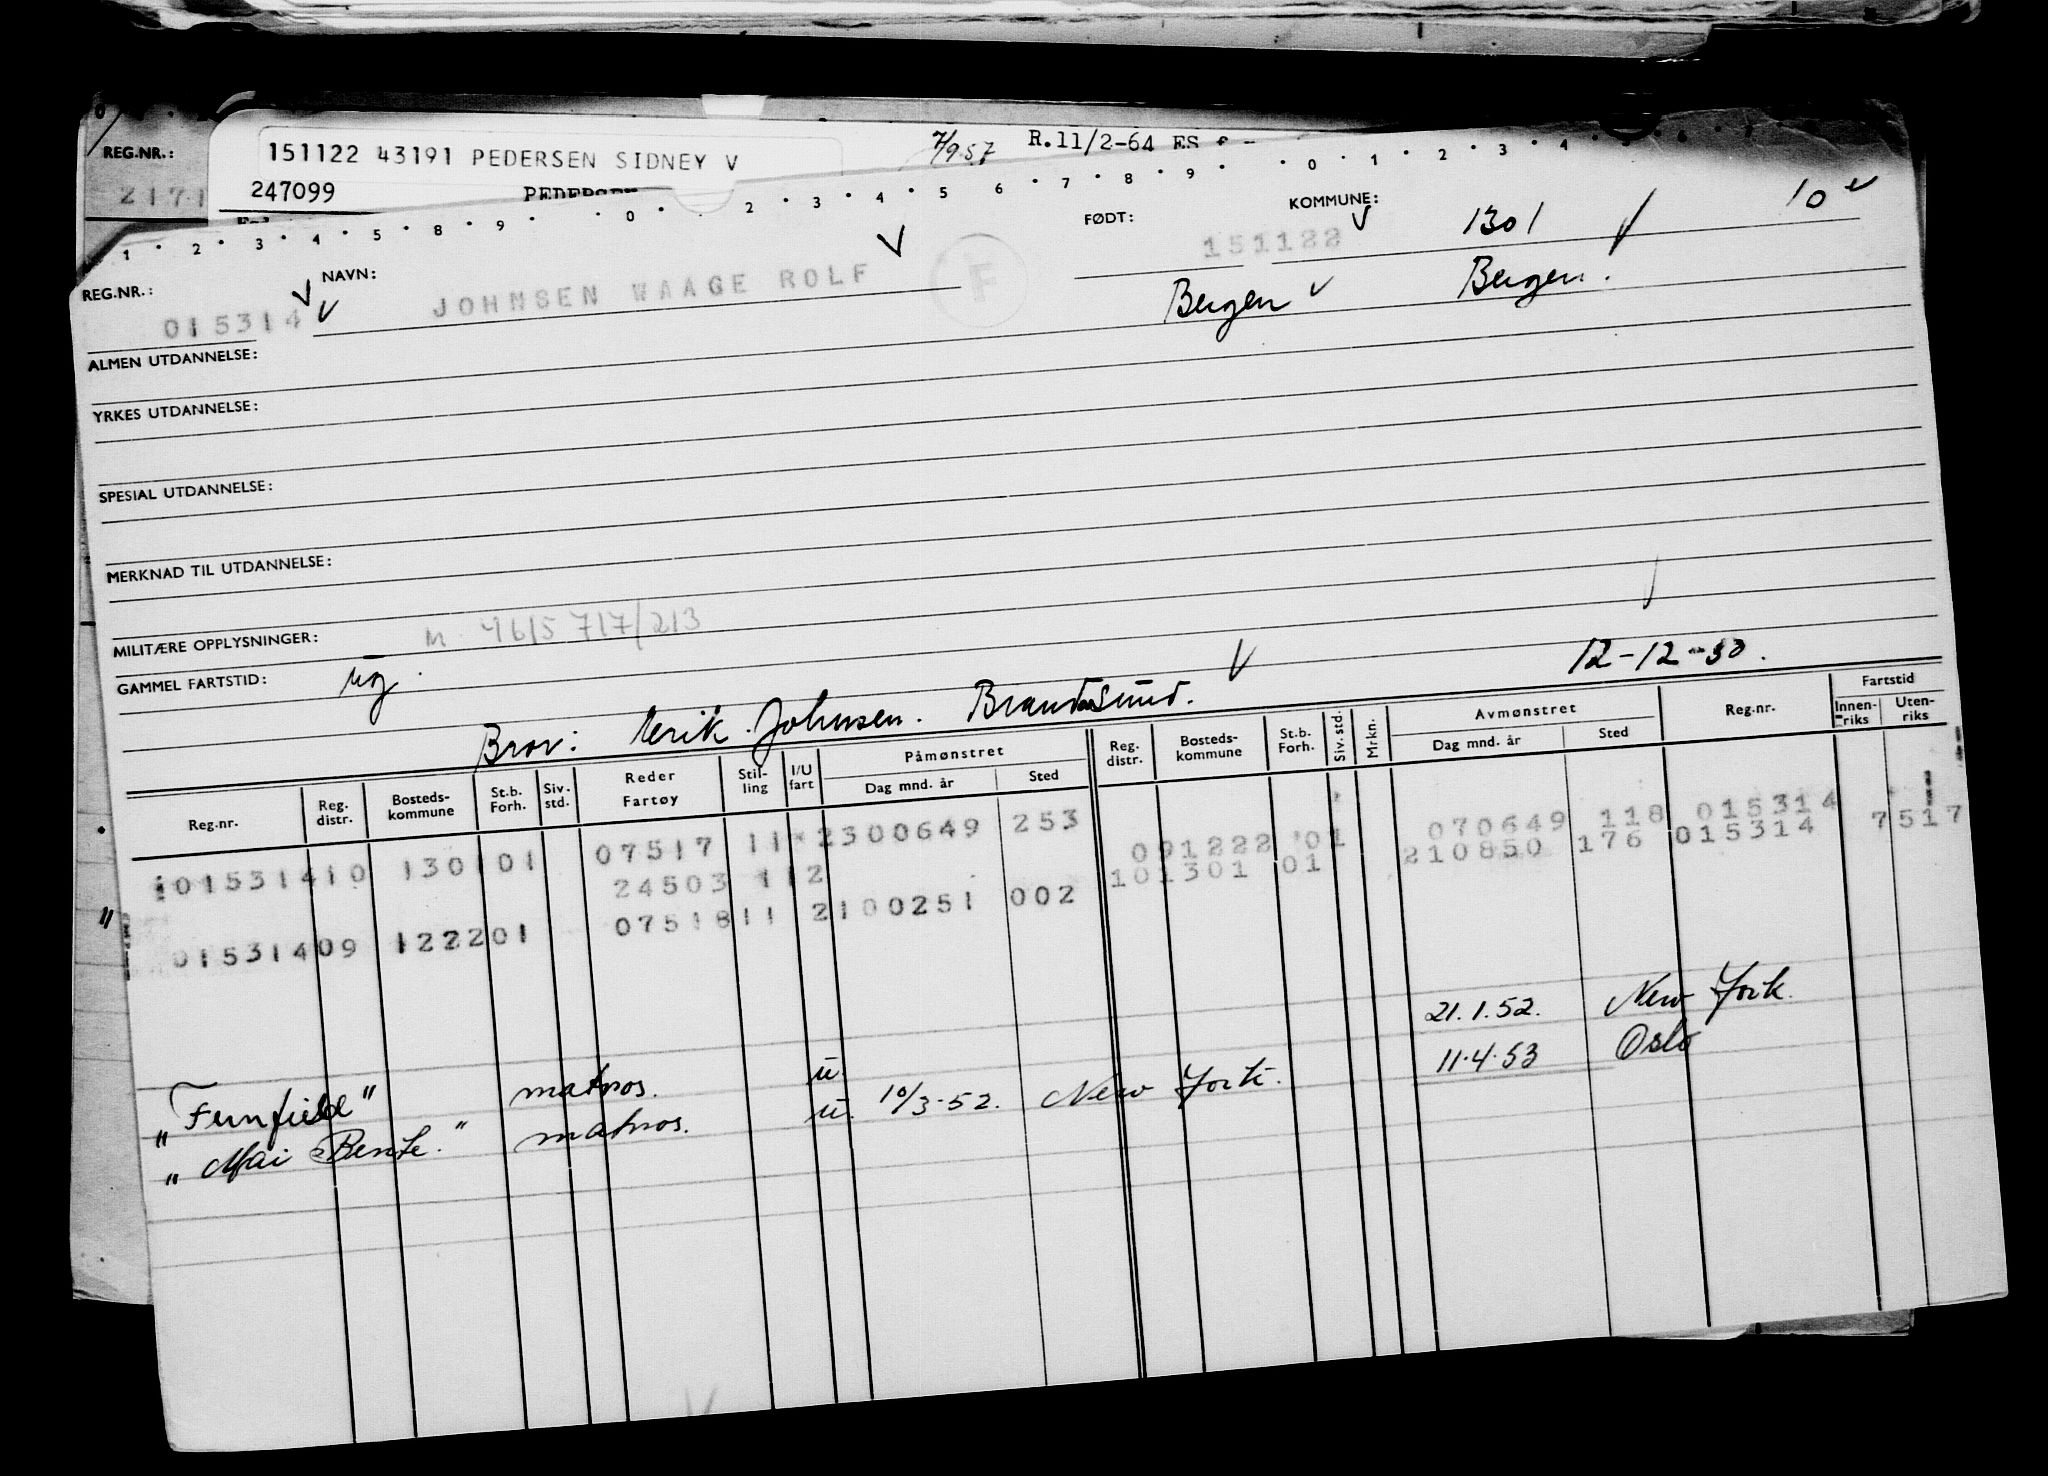 REG.NR.:
2171
151122 43191 PEDERSEN SIDNEY V
7/9 57 R.11/2-64 ES
247099
1 · 2 · 3 · 4 · 5 · 8 · 9 · · 0 · · 2 · 3 · 4 · 5 6 · 7 · 8 · 9 · · 0 · 1 · 2 · 3 · 4 · 5 · 6 · 7
REG.NR.: 015314
NAVN: JOHNSEN WAAGE ROLF F
FØDT: 151122 Bergen
KOMMUNE: 1301 Bergen.
10
ALMEN UTDANNELSE:
YRKES UTDANNELSE:
SPESIAL UTDANNELSE:
MERKNAD TIL UTDANNELSE:
MILITÆRE OPPLYSNINGER: m 4615 717/213
GAMMEL FARTSTID: ug.
12-12-50.
Bror: Erik Johnsen. Brandasund.
Reg.nr. Reg. distr. Bosteds- kommune St.b. Forh. Siv. std. Reder Fartøy Stil- ling I/U fart Påmønstret Dag mnd. år Sted Reg. distr. Bosteds- kommune St.b. Forh. Siv. std. Mrkn. Avmønstret Dag mnd. år Sted Reg.nr. Fartstid Innen- riks Uten- riks
015314 10 1301 01 07517 11 2 300649 253 09 1222 01 070649 118 015314 7517
24503 11 2 10 1301 01 210850 176 015314
015314 09 1222 01 07518 11 2 100251 002
"Fernfield" matros. u. 21.1.52. New York.
"Mai Bente." matros. u. 10/3-52. New York. 11.4.53 Oslo